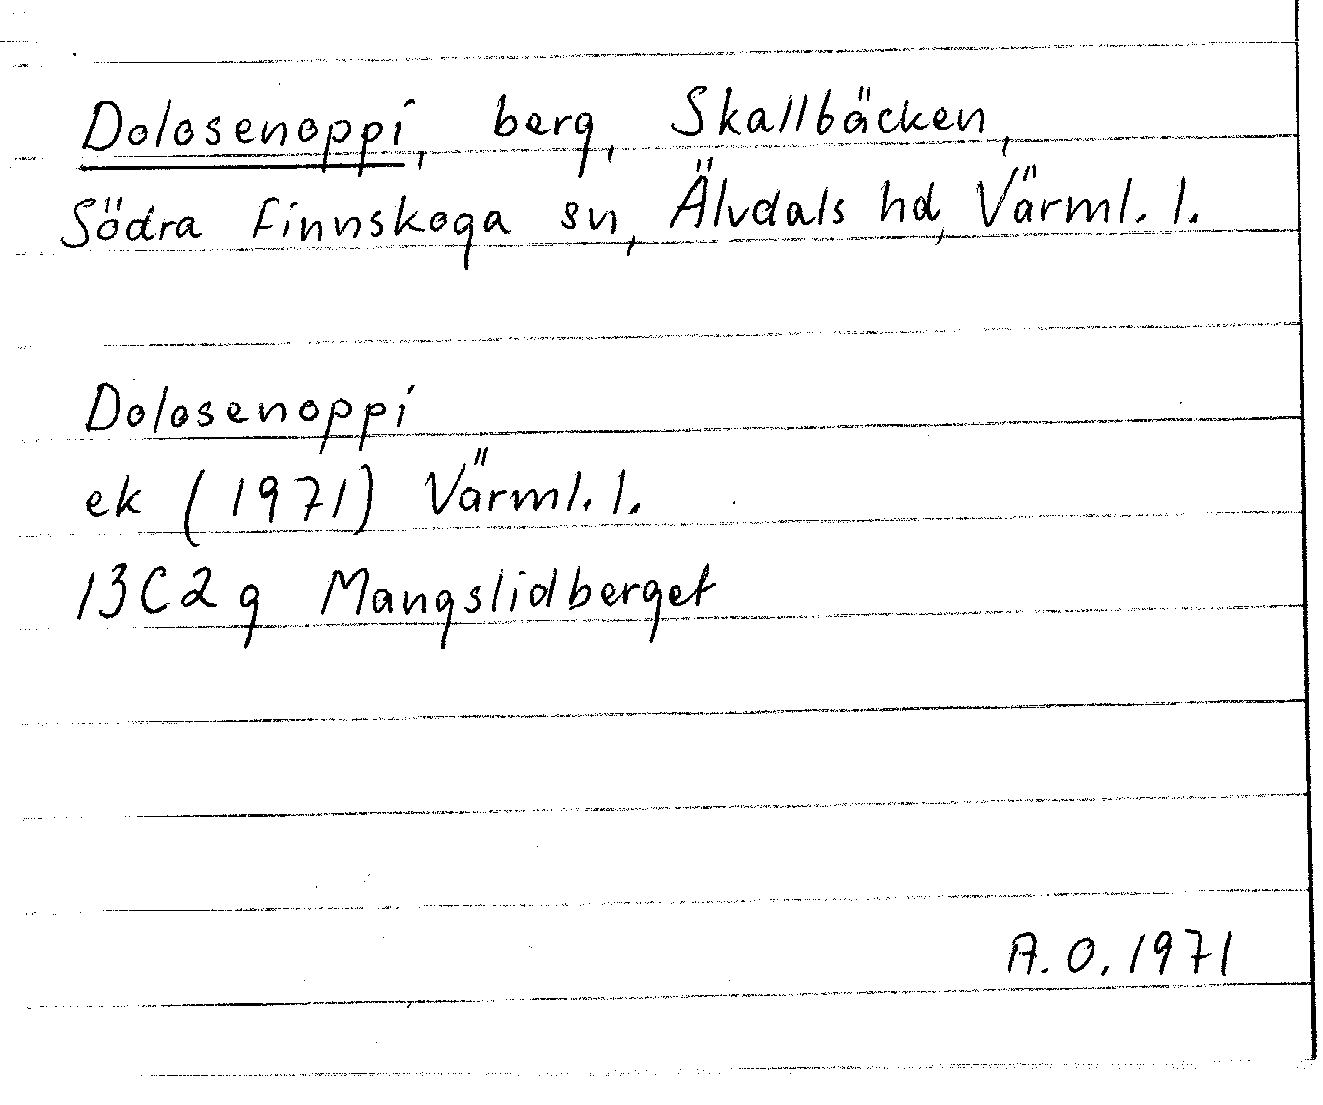 Dolosenoppi, berg, Skallbäcken,
Södra Finnskoga sn, Älvdals hd, Värml. l.
Dolosenoppi
ek (1971) Värml. l.
13C2g Mangslidberget
A. O. 1971